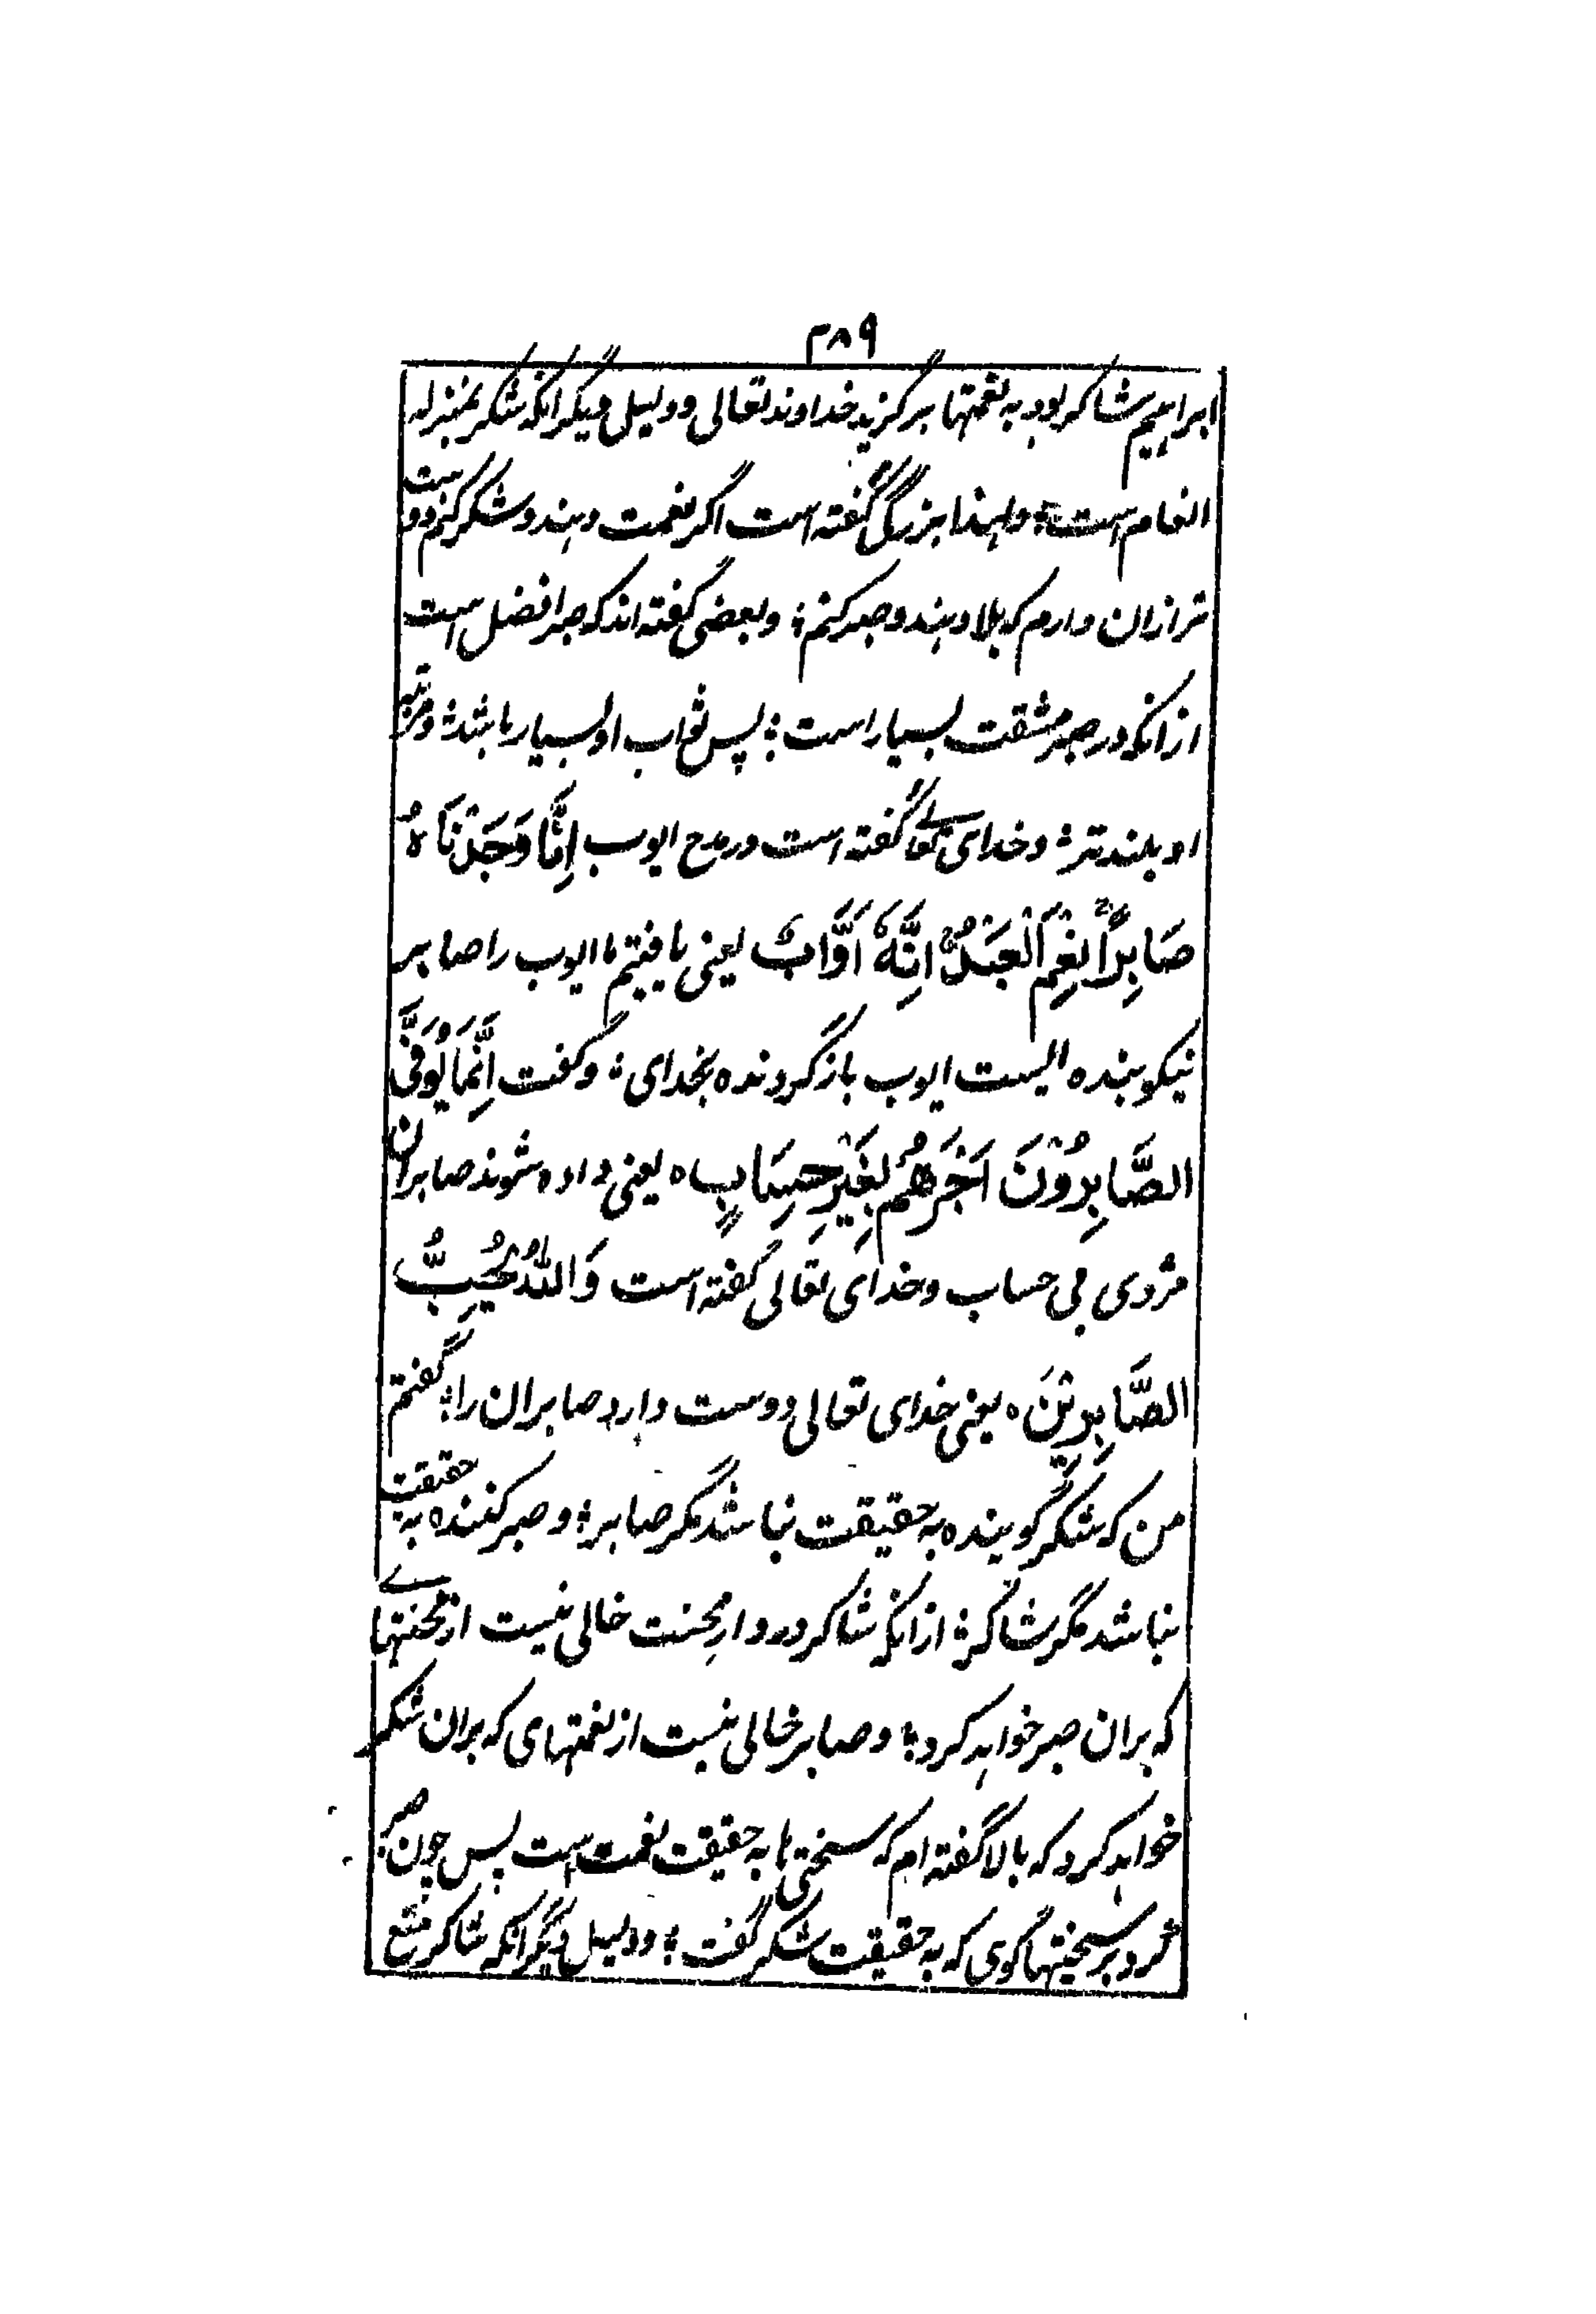 ۳۸۹
ابراهیم شاکر بود به نعمتها برگزید خداوند تعالی و دلیل دیگر انکه شکر بمنزله
انعام است ؛ و لهذا بزرگی گفته است اگر نعمت دهند و شکر کنم دوست
تر ازان دارم که بلا دهند و صبر کنم ؛ و بعضی گفته اند که صبر افضل است
از انکه در صبر مشقت بسیار است ؛ پس ثواب او بسیار باشد ؛ و مرتبه
او بلند تر ؛ و خدای تعالے گفته است در مدح ایوب اِنَّا وَجَدْنَاهُ
صَابِرًا نِعْمَ الْعَبْدُ اِنَّهٗ اَوَّابٌ یعنی یافتیم ما ایوب را صابر
نیکو بنده الیست ایوب باز گردنده بخدای ؛ و گفت اِنَّمَا یُوَفَّی
الصَّابِرُوْنَ اَجْرَهُمْ بِغَیْرِ حِسَابٍ ه یعنی داده شوند صابران
مزدی بی حساب و خدای تعالی گفته است وَاللّٰهُ یُحِبُّ
الصَّابِرِیْنَ ه یعنی خدای تعالی دوست دارد صابران را ؛ گفتم
من که شکر گوینده به حقیقت نباشد مگر صابر ؛ و صبر کننده به حقیقت
نباشد مگر شاکر ؛ از انکه شاکر در دار محنت خالی نیست از محنتهاے
که بران صبر خواهد کرد ؛ و صابر خالی نیست از نعمتهای که بران شکر
خواهد کرد که بالا گفته ام که سختی ها به حقیقت نعمت است پس چون صبر
کرد بر سختیها گوی که به حقیقت شکر گفت ؛ و دلیل دیگر انکه شاکر متمتع